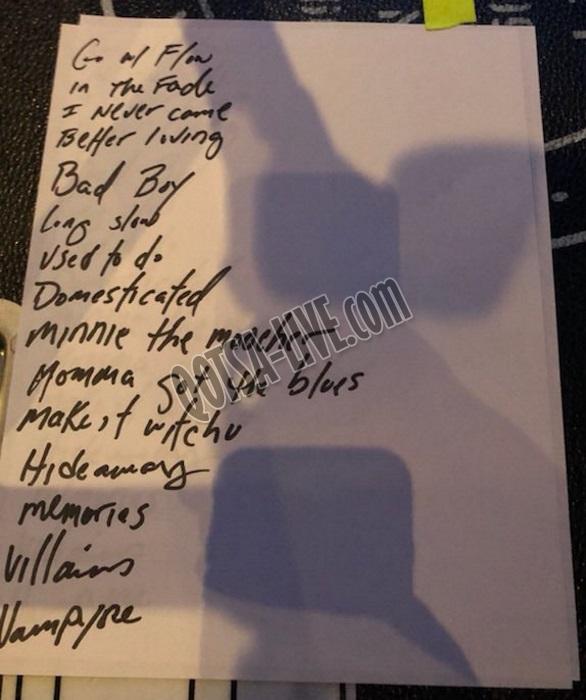 Go w/ Flow
in the Fade
I Never came
Better loving
Bad Boy
Long slow
Used to do
Domesticated
minnie the moocher
Momma got the blues
Make it witchu
Hideaway
memories
Villains
Vampyre
QOTSA-LIVE.com